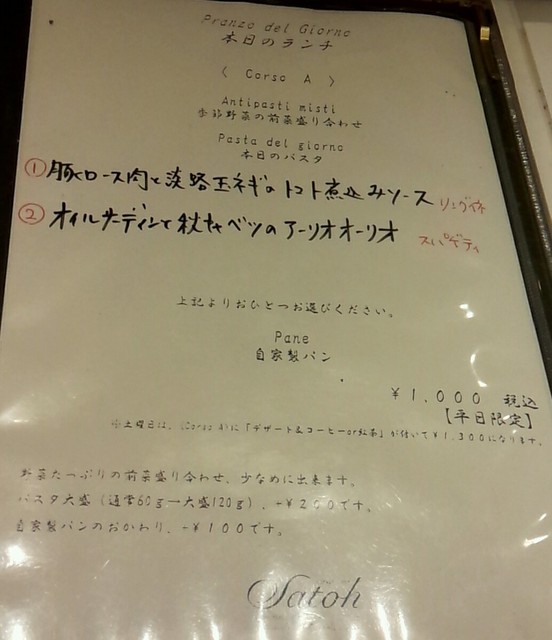 Pranzo del Giorno
本日のランチ
〈 Corso A 〉
Antipasti misti
季節野菜の前菜盛り合わせ
Pasta del giorno
本日のパスタ
① 豚ロース肉と淡路玉ネギのトマト煮込みソース リングイネ
② オイルサーディンと秋キャベツのアーリオオーリオ スパゲティ
上記よりおひとつお選びください。
Pane
自家製パン
¥1,000 税込
【平日限定】
※土曜日は、(Corso A)に「デザート&コーヒーor紅茶」が付いて¥1,300になります。
野菜たっぷりの前菜盛り合わせ、少なめに出来ます。
パスタ大盛(通常60g→大盛120g)、+¥200です。
自家製パンのおかわり、+¥100です。
Satoh